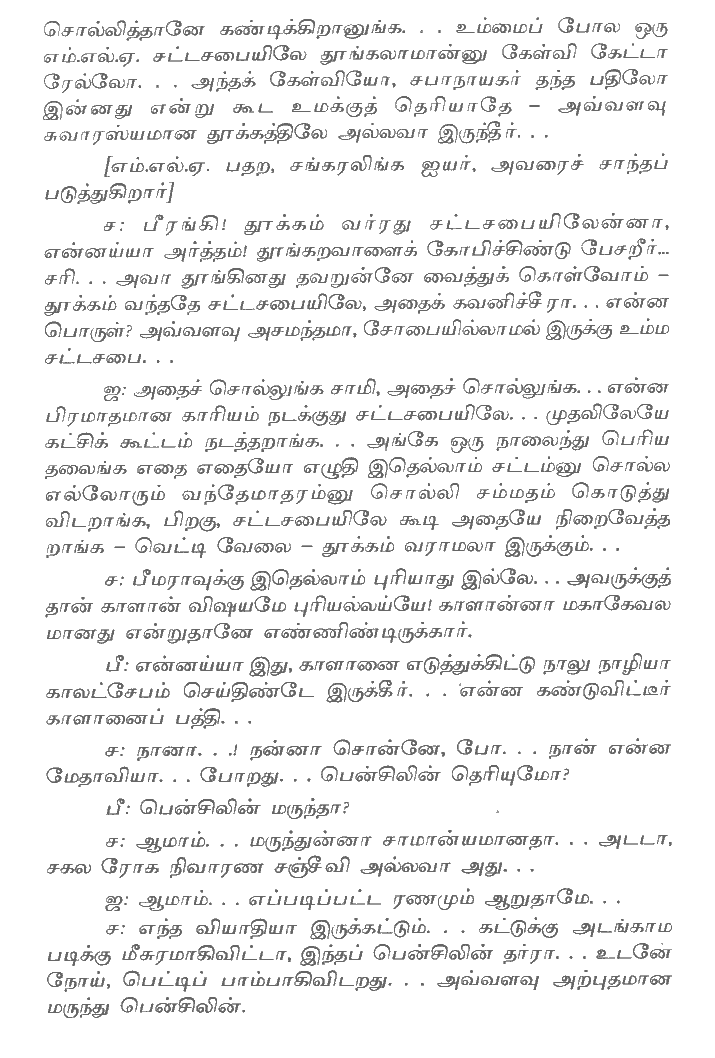 சொல்லித்தானே கண்டிக்கிறானுங்க. . . உம்மைப் போல ஒரு
எம்.எல்.ஏ. சட்டசபையிலே தூங்கலாமான்னு கேள்வி கேட்டா
ரேல்லோ. . . அந்தக் கேள்வியோ, சபாநாயகர் தந்த பதிலோ
இன்னது என்று கூட உமக்குத் தெரியாதே – அவ்வளவு
சுவாரஸ்யமான தூக்கத்திலே அல்லவா இருந்தீர். . .
[எம்.எல்.ஏ. பதற, சங்கரலிங்க ஐயர், அவரைச் சாந்தப்
படுத்துகிறார்]
ச: பீரங்கி! தூக்கம் வர்ரது சட்டசபையிலேன்னா,
என்னய்யா அர்த்தம்! தூங்கறவாளைக் கோபிச்சிண்டு பேசறீர்...
சரி. . . அவா தூங்கினது தவறுன்னே வைத்துக் கொள்வோம் –
தூக்கம் வந்ததே சட்டசபையிலே, அதைக் கவனிச்சீரா. . . என்ன
பொருள்? அவ்வளவு அசமந்தமா, சோபையில்லாமல் இருக்கு உம்ம
சட்டசபை. . .
ஐ: அதைச் சொல்லுங்க சாமி, அதைச் சொல்லுங்க. . . என்ன
பிரமாதமான காரியம் நடக்குது சட்டசபையிலே. . . முதலிலேயே
கட்சிக் கூட்டம் நடத்தறாங்க. . . அங்கே ஒரு நாலைந்து பெரிய
தலைங்க எதை எதையோ எழுதி இதெல்லாம் சட்டம்னு சொல்ல
எல்லோரும் வந்தேமாதரம்னு சொல்லி சம்மதம் கொடுத்து
விடறாங்க, பிறகு, சட்டசபையிலே கூடி அதையே நிறைவேத்த
றாங்க – வெட்டி வேலை – தூக்கம் வராமலா இருக்கும். . .
ச: பீமராவுக்கு இதெல்லாம் புரியாது இல்லே. . . அவருக்குத்
தான் காளான் விஷயமே புரியல்லய்யே! காளான்னா மகாகேவல
மானது என்றுதானே எண்ணிண்டிருக்கார்.
பீ: என்னய்யா இது, காளானை எடுத்துக்கிட்டு நாலு நாழியா
காலட்சேபம் செய்திண்டே இருக்கீர். . . என்ன கண்டுவிட்டீர்
காளானைப் பத்தி. . .
ச: நானா. . .! நன்னா சொன்னே, போ. . . நான் என்ன
மேதாவியா. . . போறது. . . பென்சிலின் தெரியுமோ?
பீ: பென்சிலின் மருந்தா?
ச: ஆமாம். . . மருந்துன்னா சாமான்யமானதா. . . அடடா,
சகல ரோக நிவாரண சஞ்சீவி அல்லவா அது. . .
ஐ: ஆமாம். . . எப்படிப்பட்ட ரணமும் ஆறுதாமே. . .
ச: எந்த வியாதியா இருக்கட்டும். . . கட்டுக்கு அடங்காம
படிக்கு மீசுரமாகிவிட்டா, இந்தப் பென்சிலின் தர்ரா. . . உடனே
நோய், பெட்டிப் பாம்பாகிவிடறது. . . அவ்வளவு அற்புதமான
மருந்து பென்சிலின்.